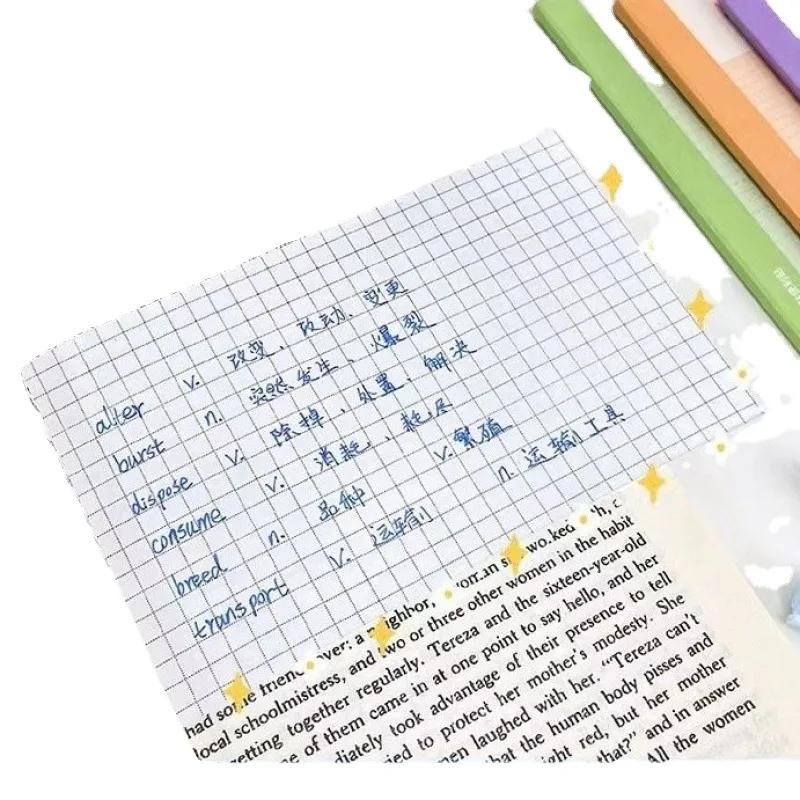 alter v. 改变、改动、变更
burst n. 突然发生、爆裂
dispose v. 除掉、处置、解决
consume v. 消耗、耗尽
breed n. 品种 v.繁殖
transport v. 运输 n.运输工具
had some friend over: a neighbor,
local schoolmistress, and two or three other women in the habit
getting together regularly. Tereza and the sixteen-year-old
of them came in at one point to say hello, and her
diately took advantage of their presence to tell
to protect her mother's modesty. She
laughed with her. "Tereza can't
that the human body pisses and
red, but her mother
that?" and in answer
All the women